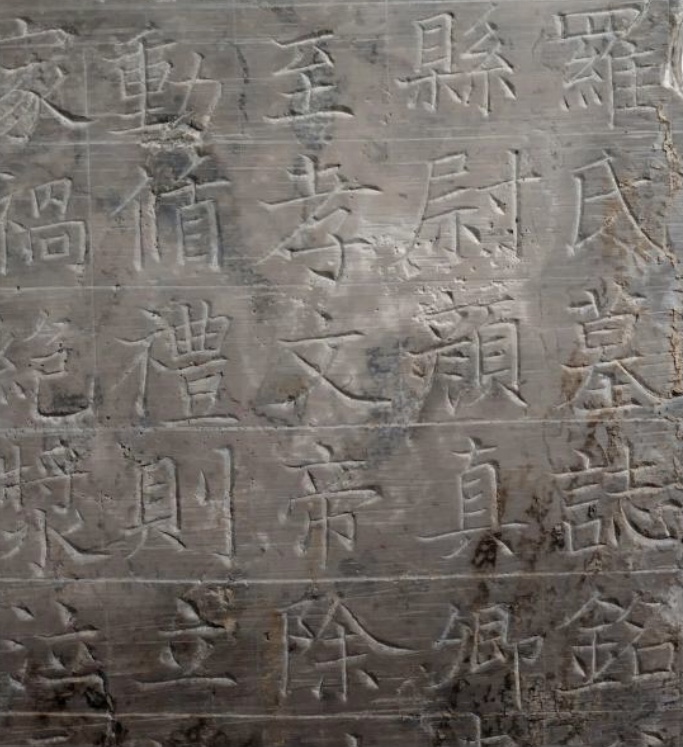 羅氏墓誌銘
縣尉顏真卿
至孝文帝除
動循禮則立
家禍絕漿泣